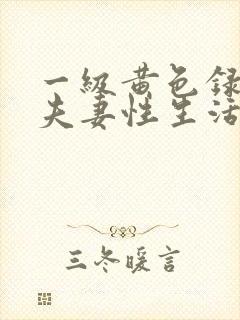 一级黄色録
夫妻性生活
三冬暖言